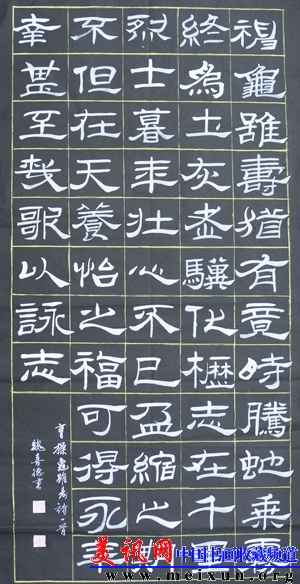 神龜雖壽猶有竟時騰虵乘霧
終為土灰老驥伏櫪志在千里
烈士暮年壯心不已盈縮之期
不但在天養怡之福可得永年
幸甚至哉歌以詠志
曹操龜雖壽詩一首
魏喜德書
美讯网
中国书画收藏频道
www.meixun.org